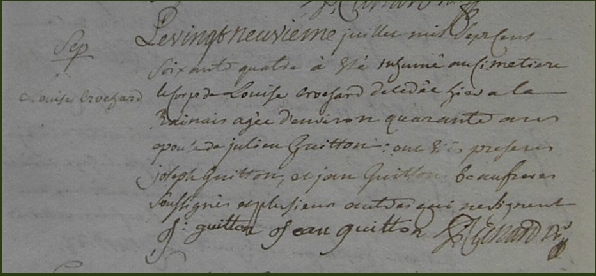 Sep
Louise Crochard
Le vingt neuvieme juillet mil sept cens
soixante quatre à été inhumé au cimetiere
le corps de Louise Crochard decedée hier a la
agée d'environ quarante ans
epouse de julien Guitton : ont été presens
joseph Guitton, et jan Guitton beaufreres
soussignes et plusieurs autres qui ne signent
j: guitton jean guitton